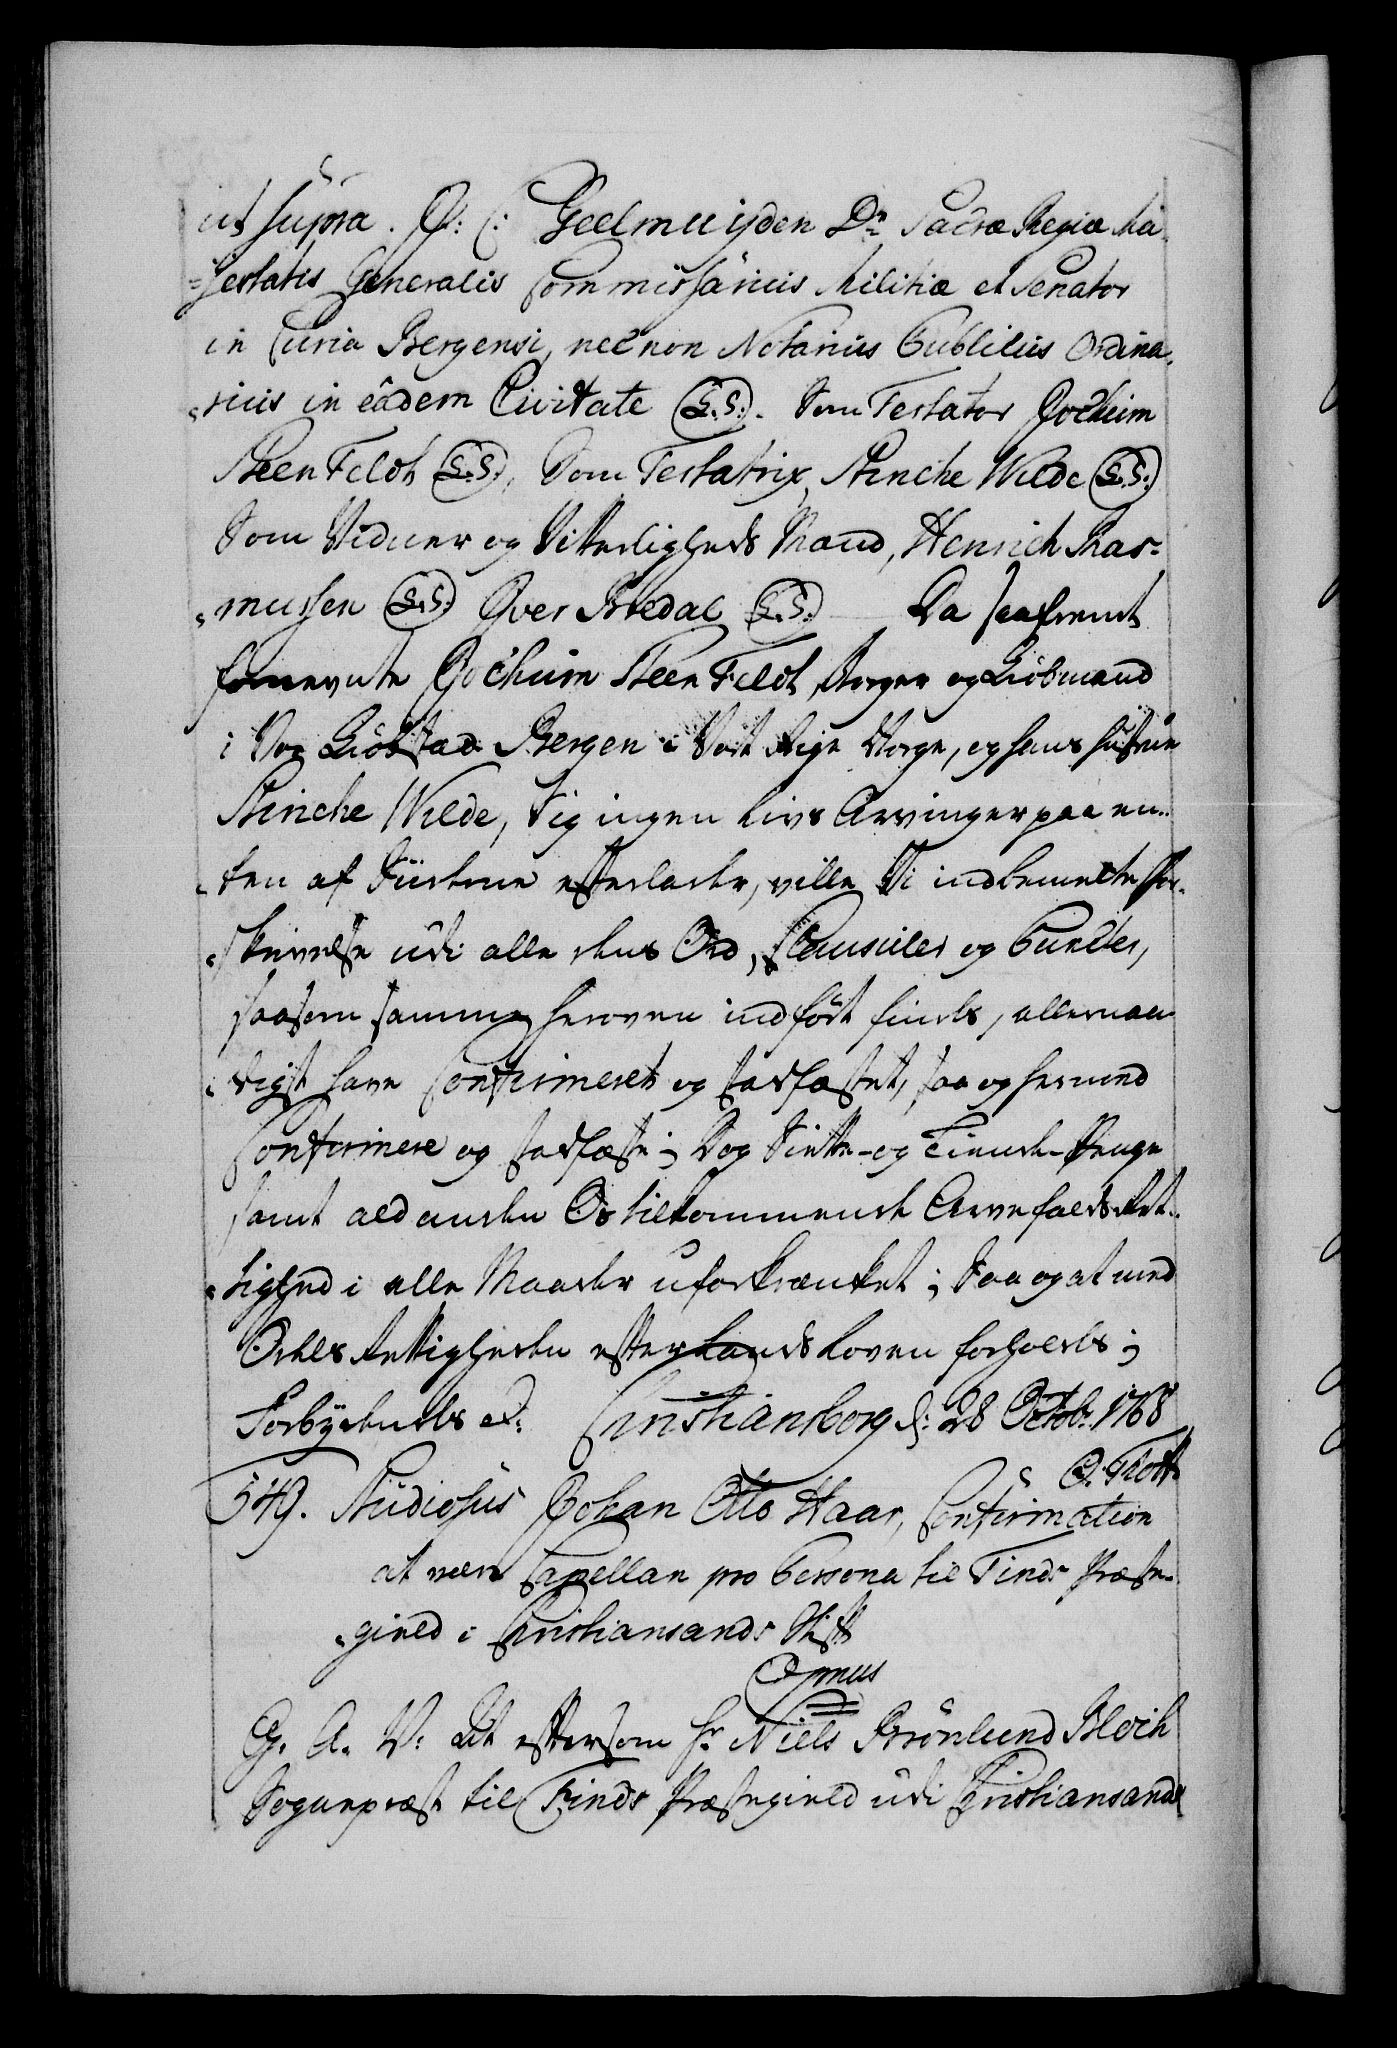 ut supra. J: C: Geelmuijden Dn Sacræ Regiæ Ma„
„jestatis Generalis Commissarius Militiæ et Senator
in Curia Bergensi, nec non Notarius Publicus Ordina„
„rius in eâdem Civitate (L.S:). Som Testator Jochim
Steen Feldt (L.S:), Som Testatrix, Stinche Wilde (L.S:)
Som Vidner og Vitterligheds Mænd, Henrich Ras„
„mussen (L.S:) Iver Bredal (L.S:) Da saafremt
fornevnte Jochum Steen Feldt, Borger og Kiøbmand
i Vor Kiøbstad Bergen i Vort Rige Norge, og hans Hustrue
Stinche Wilde, sig ingen Livs Arvinger paa en„
„den af Siderne efterlader, ville Vi indbemelte for„
„skrivelse udi alle dens Ord, Clausuler og Puncter,
saasom samme heroven indført findes, allernaa„
„digst have Confirmeret og stadfæstet, saa og hermed
Confirmere og stadfæste; Dog Siette- og Tiende-Penge
samt ald anden Os tilkommende Arvefalds Ret„
„tighed i alle Maader uforkrænket; Saa og at med
Odels Rettigheden efter Lands Loven forholdes;
Forbydendes etc. Christiansborg d: 28 Octobr 1768
O. Thott
549. Studiosus Johan Otto Haar, Confirmation
at være Capellan pro Persona til Finds Præste„
„gield i Christiansands Stift
C. A. V: At eftersom Hr Niels Brønlund Bloch
Sognepræst til Finds Præstegield udi Christiansands